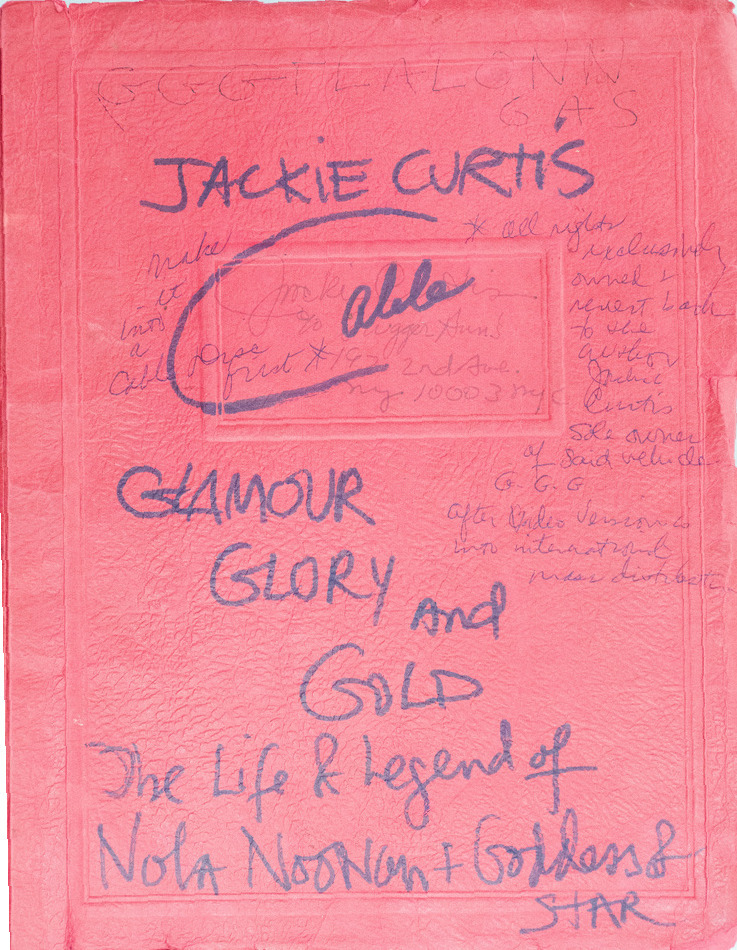 GGGILALONN
GAS
JACKIE CURTIS
Make
it
into
a
Cable Disc
first *
Cable
Jackie Curtis
c/o Slugger Ann's
192 2nd Ave.
ny 10003 nyc
* all rights
exclusively
owned &
revert back
to the
author
Jackie
Curtis
sole owner
of said vehicle
G. G. G
after Video Version is
into international
mass
GLAMOUR
GLORY
And
GOLD
The Life & Legend of
Nola Noonan + Goddess &
STAR